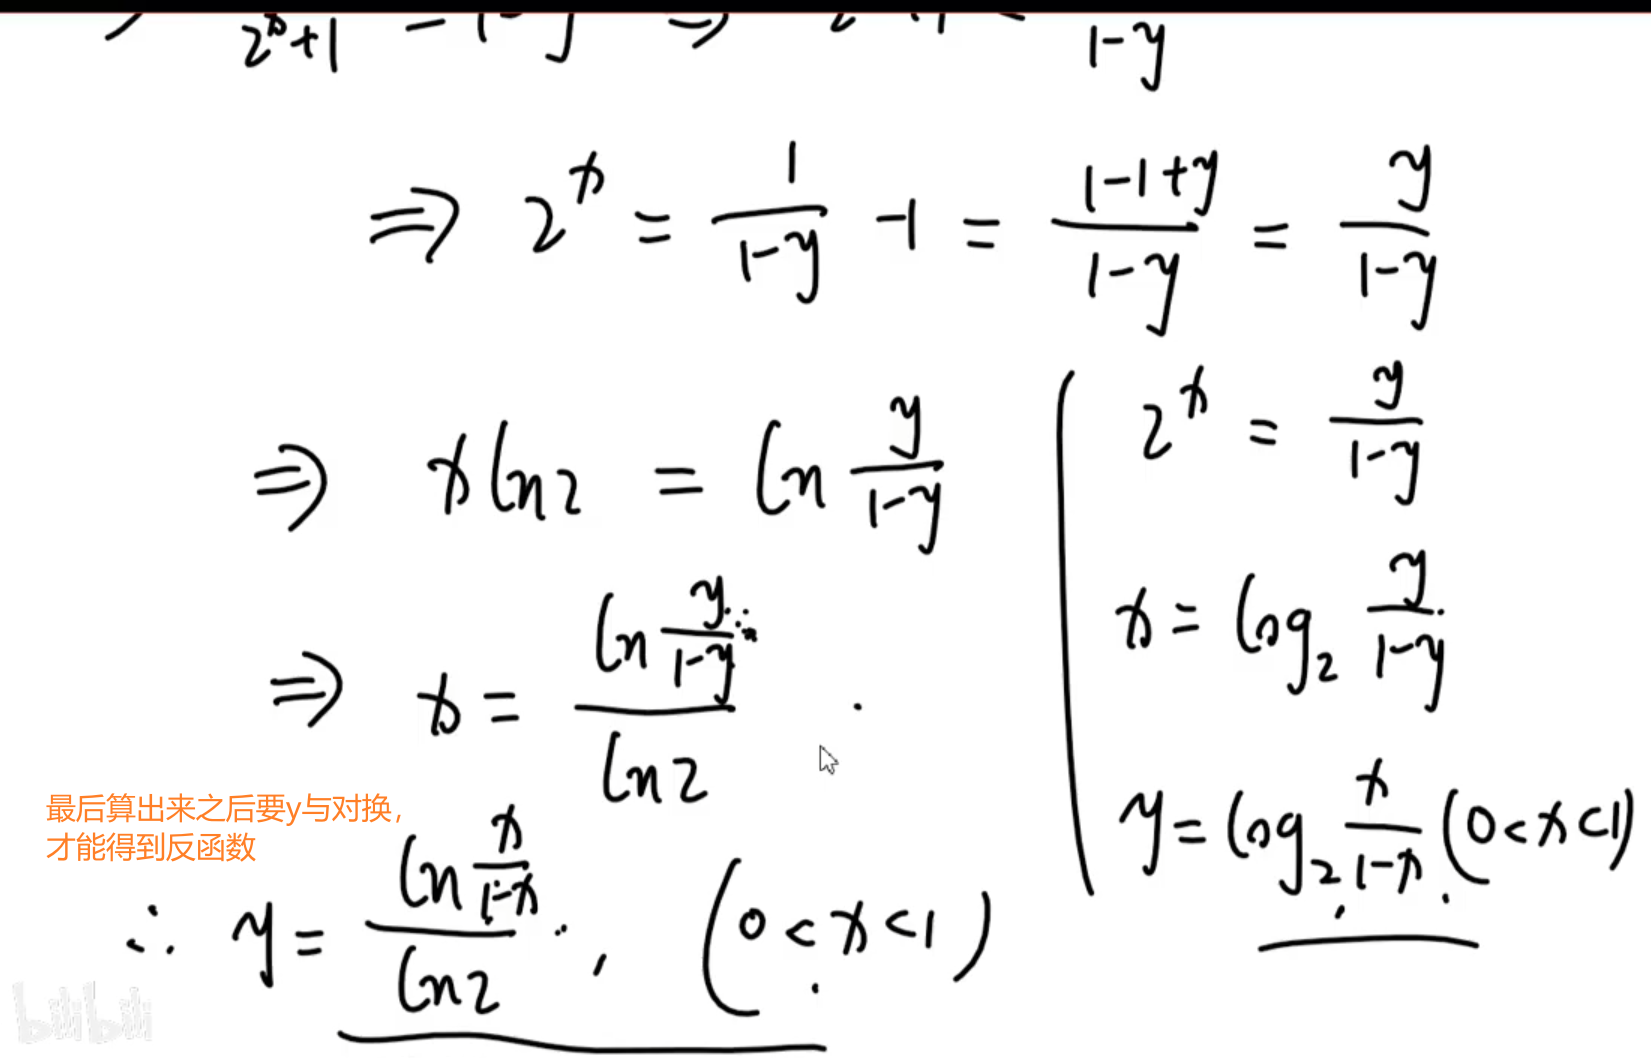 2^x+1 = 1-y ⇒ 2^x+1 = 1/(1-y)
⇒ 2^x = 1/(1-y) -1 = (1-1+y)/(1-y) = y/(1-y)
⇒ x ln2 = ln y/(1-y)
⇒ x = (ln y/(1-y))/(ln2)
最后算出来之后要y与对换，
才能得到反函数
∴ y = (ln x/(1-x))/(ln2) , (0<x<1)
2^x = y/(1-y)
x = log₂ y/(1-y)
y = log₂ x/(1-x) (0<x<1)
bilibili